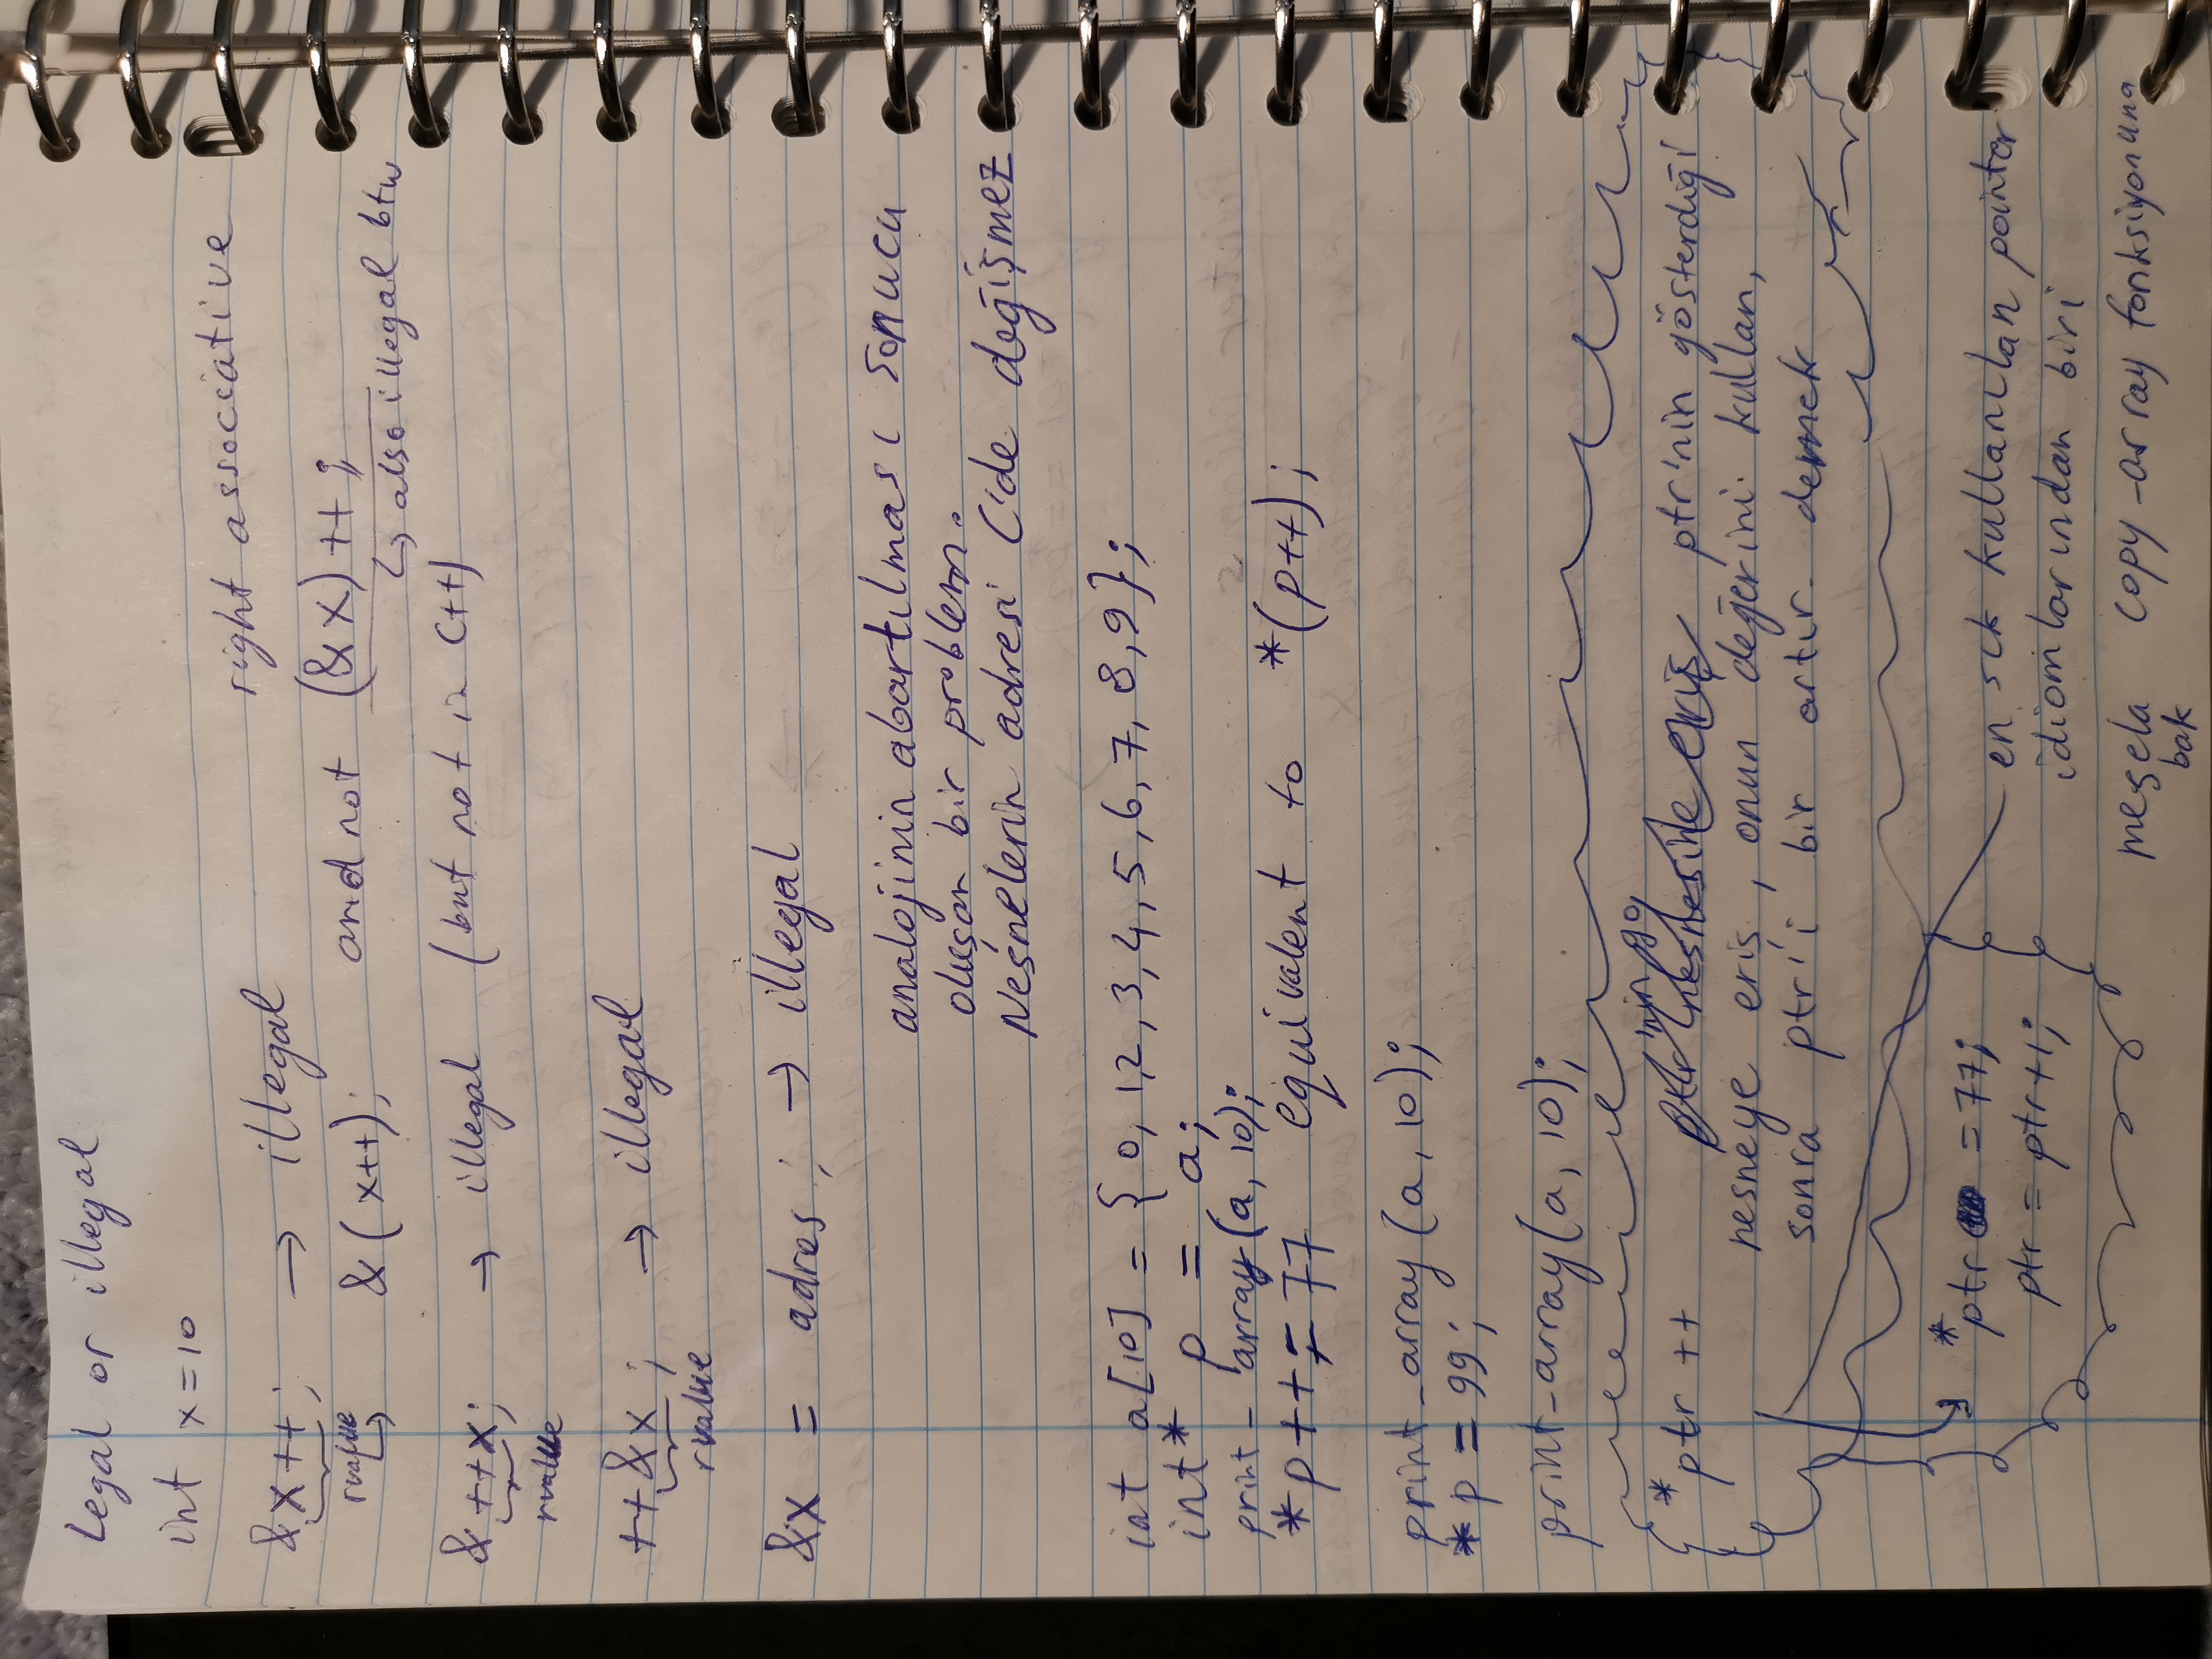 Legal or illegal
int x=10
right associative
&x++; → illegal
rvalue
↳ &(x++); and not (&x)++;
↳ also illegal btw
&++x; → illegal (but not in C++)
rvalue
++&x; → illegal
rvalue
&x = adres; → illegal
analojinin abartılması sonucu
oluşan bir problem.
Neşnelerin adresi C'de değişmez
int a[10] = {0, 1,2, 3,4,5,6,7,8,9};
int* p = a;
print_array(a, 10);
*p++ = 77 equivalent to *(p++);
print_array(a, 10);
*p = 99;
print_array(a, 10);
*ptr ++ ptr'nin gösterdiği
nesneye eriş, onun değerini kullan,
sonra ptr'i bir artır demek
*ptr = 77;
ptr = ptr+1;
en sık kullanılan pointer
idiomlarından biri
meşela copy_array fonksiyonuna
bak